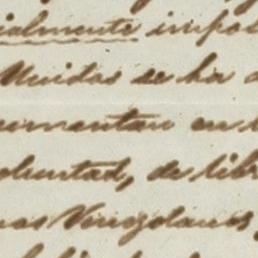 ialmente impos
Unidos se ha
cumentan en l
oluntad, de libr
nas Venezolanas